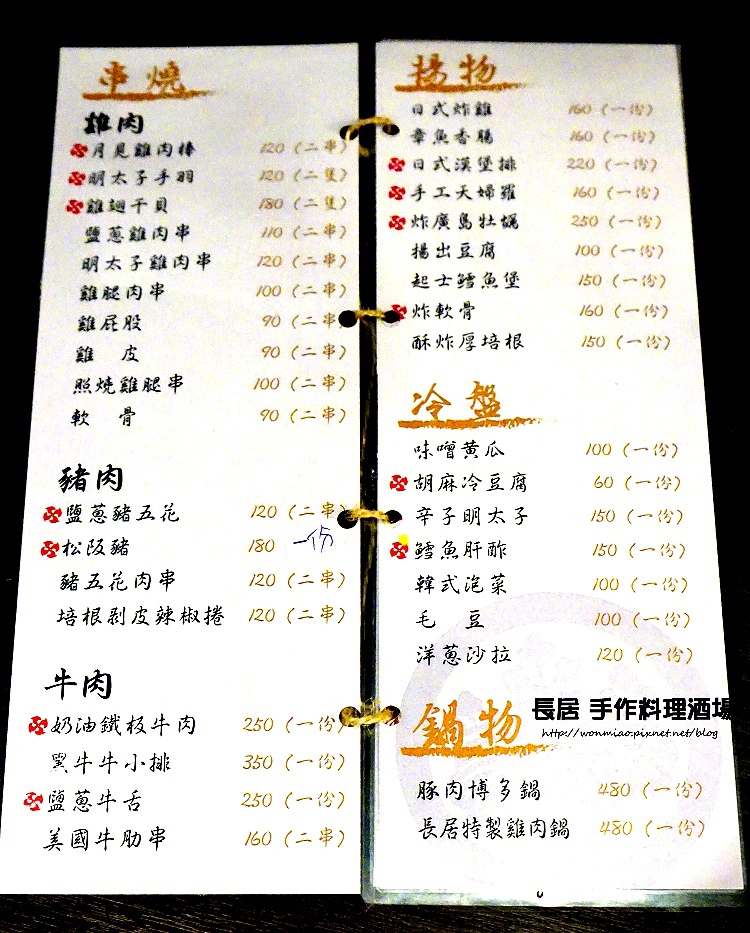 串燒
雞肉
月見雞肉棒 120（二串）
明太子手羽 120（二隻）
雞翅干貝 180（二隻）
鹽蔥雞肉串 110（二串）
明太子雞肉串 120（二串）
雞腿肉串 100（二串）
雞屁股 90（二串）
雞 皮 90（二串）
照燒雞腿串 100（二串）
軟 骨 90（二串）
豬肉
鹽蔥豬五花 120（二串）
松阪豬 180 一份
豬五花肉串 120（二串）
培根剥皮辣椒捲 120（二串）
牛肉
奶油鐵板牛肉 250（一份）
黑牛牛小排 350（一份）
鹽蔥牛舌 250（一份）
美國牛肋串 160（二串）
揚物
日式炸雞 160（一份）
章魚香腸 160（一份）
日式漢堡排 220（一份）
手工天婦羅 160（一份）
炸廣島牡蠣 250（一份）
揚出豆腐 100（一份）
起士鱈魚堡 150（一份）
炸軟骨 160（一份）
酥炸厚培根 150（一份）
冷盤
味噌黃瓜 100（一份）
胡麻冷豆腐 60（一份）
辛子明太子 150（一份）
鱈魚肝酢 150（一份）
韓式泡菜 100（一份）
毛 豆 100（一份）
洋蔥沙拉 120（一份）
鍋物
長居 手作料理酒場
http://wonmiao.pixnet.net/blog
豚肉博多鍋 480（一份）
長居特製雞肉鍋 480（一份）